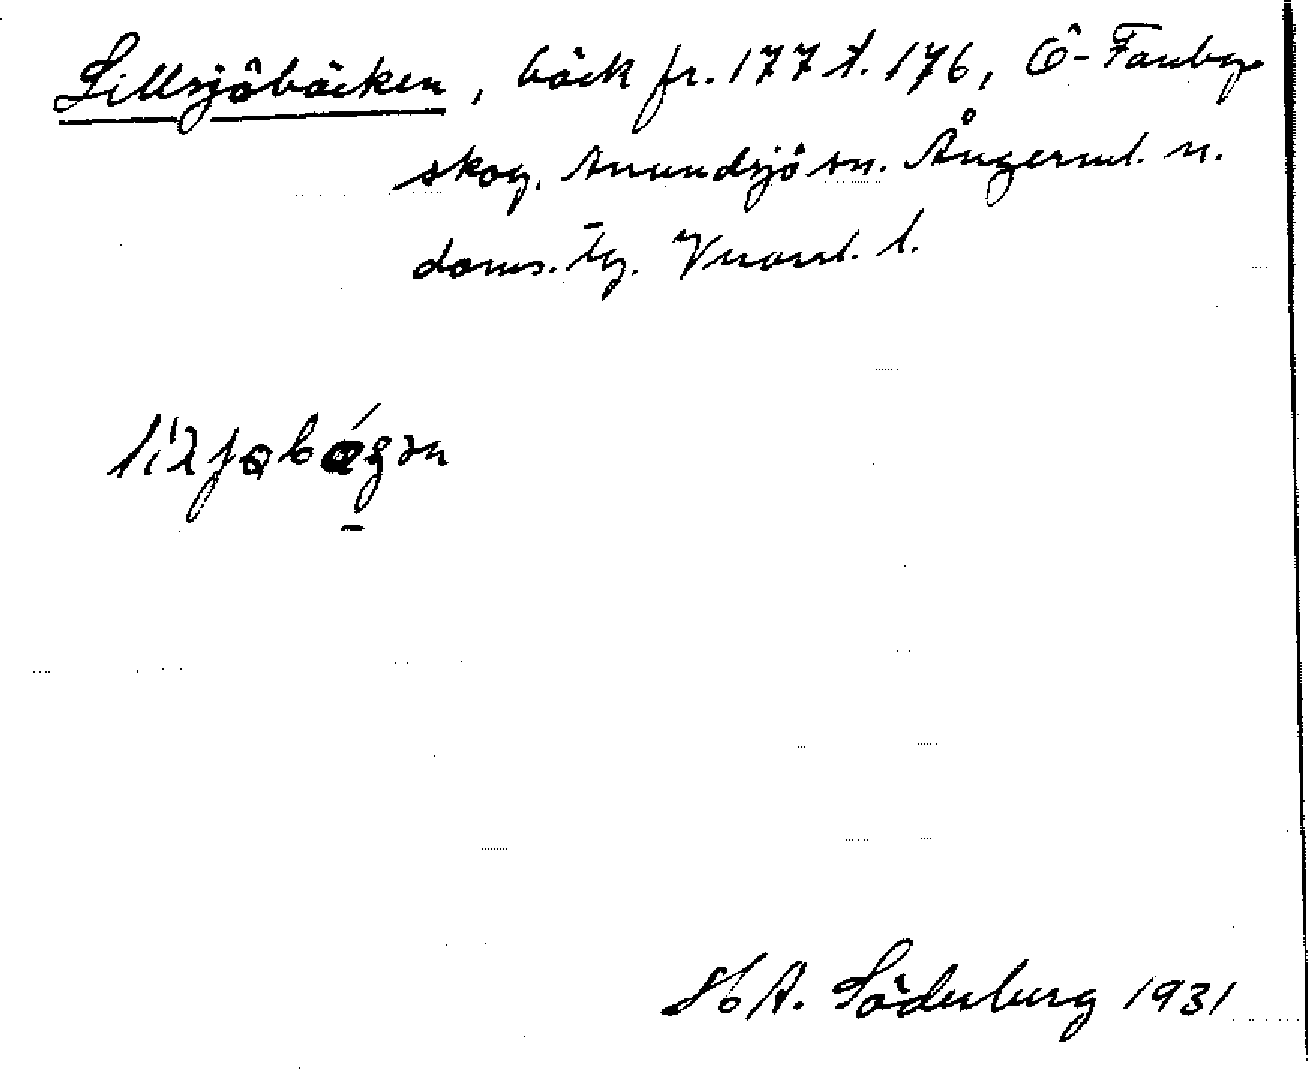 Lillsjöbäcken, bäck fr. 177 t. 176, Ö-Fanbyn
skog. Anundsjö sn. Ångerml. n.
doms. tg. Vnorrl. l.
S.A. Söderberg 1931